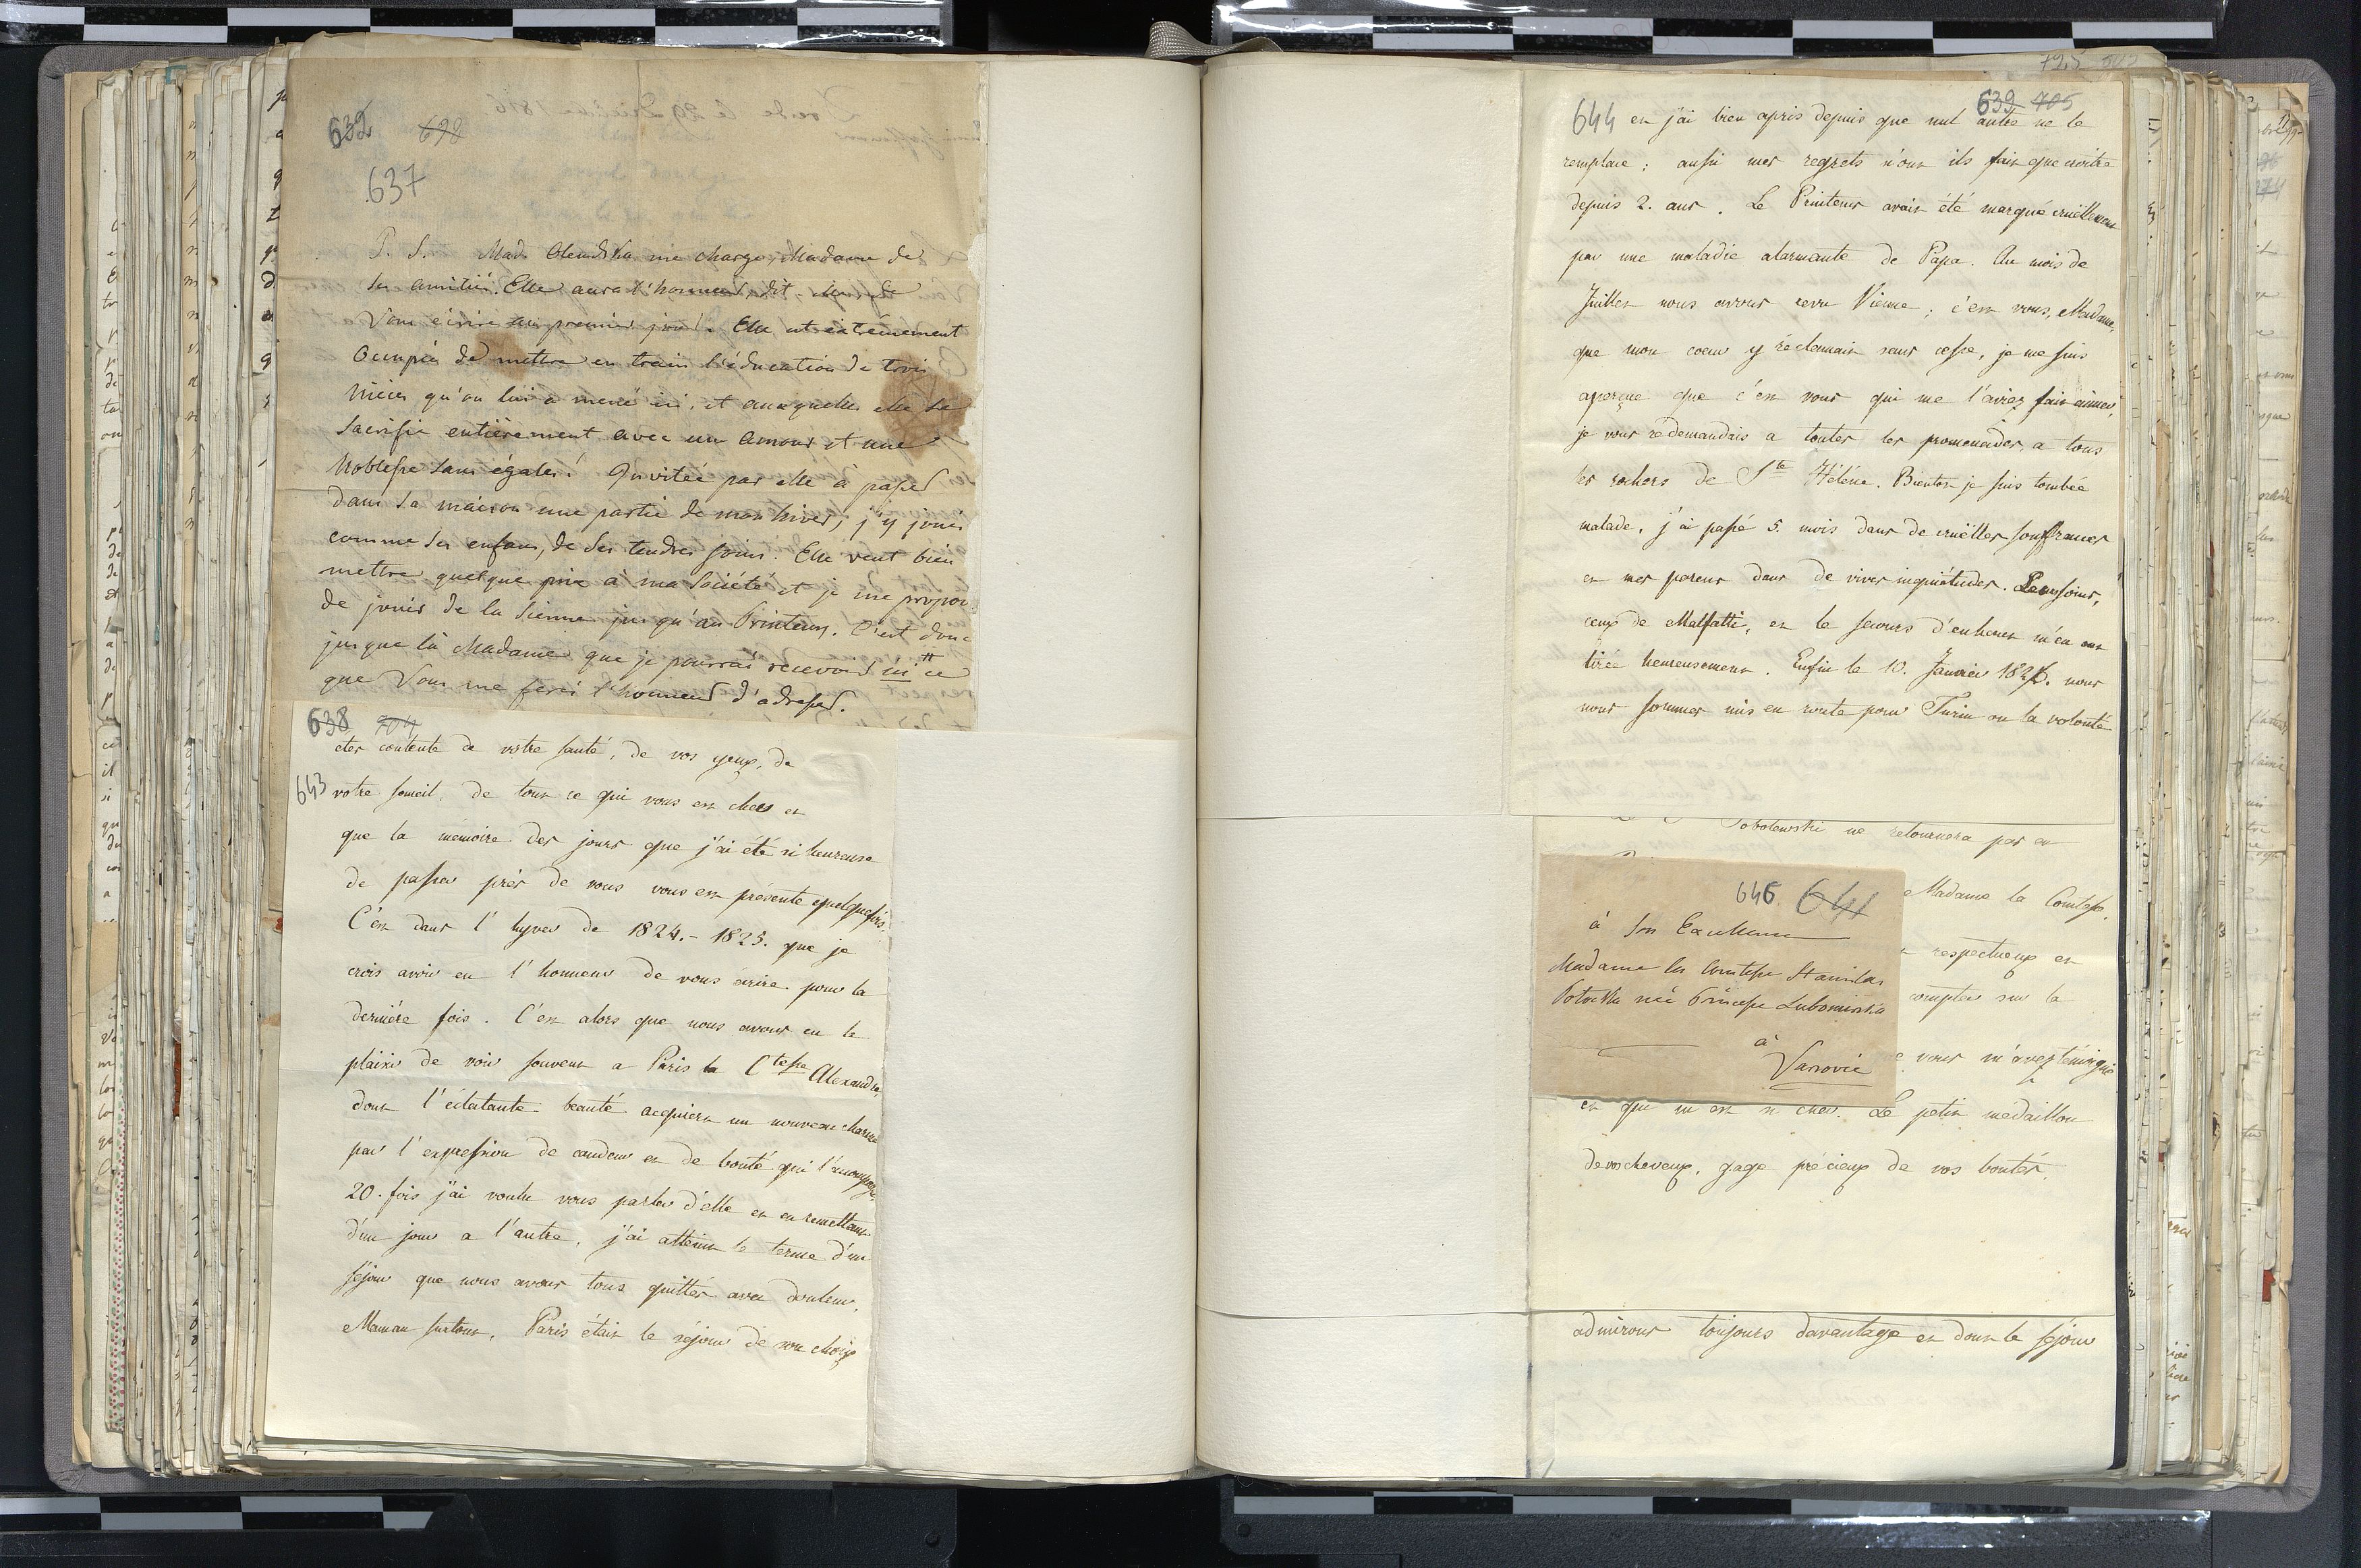 632 698
637
P. S. Made Olendska me charge, Madame de
ses amitiés. Elle aura l'honneur, dit elle de
Vous écrire ces premiers jours. Elle est extrêmement
Occupée de mettre en train l'éducation de trois
Nièces qu'on lui a mené ici, et auxquelles elle se
Sacrifie entièrement avec un Amour et une
Noblesse sans égales! Invitée par elle à passer
dans sa maison une partie de mon hiver, j'y jouis
comme ses enfans, de ses tendres soins. Elle veut bien
mettre quelque prix à ma Société et je me propose
de jouir de la Sienne jusqu'au Printems. C'est donc
jusque là Madame que je pourrai recevoir ici ce
que Vous me ferés l'honneur d'adresser.
638 704
etes contente de votre santé, de vos yeux, de
643 votre someil, de tout ce qui vous est cher et
que la mémoire des jours que j'ai été si heureuse
de passer près de vous vous est présente quelquefois.
C'est dans l'hyver de 1824.-1825. que je
crois avoir eu l'honneur de vous écrire pour la
dernière fois. C'est alors que nous avons eu le
plaisir de voir souvent a Paris la Ctesse Alexandre,
dont l'éclatante beauté acquiert un nouveau charme
par l'expression de candeur et de bonté qui l'accompagne.
20. fois j'ai voulu vous parler d'elle et en remettant
d'un jour a l'autre, j'ai atteint le terme d'un
séjour que nous avons tous quittés avec douleur,
Maman surtout. Paris était le séjour de son choix
639 705
644 et j'ai bien apris depuis que nul autre ne le
remplace; aussi mes regrets n'ont ils fait que croitre
depuis 2. ans. Le Printems avait été marqué cruëllement
par une maladie alarmante de Papa. Au mois de
Juillet nous avons revu Vienne; c'est vous, Madame,
que mon coeur y réclamait sans cesse, je me suis
aperçue que c'est vous qui me l'aviez fait aimer,
je vous redemandais a toutes les promenades, a tous
les rochers de Ste Hélène. Bientot je suis tombée
malade, j'ai passé 5. mois dans de cruëlles souffrances
et mes parens dans de vives inquiétudes. Leurs soins,
ceux de Malfatti, et le secours d'enhaut m'en ont
tirée heureusement. Enfin le 10. Janvier nous
nous sommes mis en route pour Turin ou la volonté
Sobolewski ne retournera pas en
Madame la Comtesse,
respectueux et
compter sur la
vous m'avez témoigné
et qui m'est si cher. Le petit medaillon
de vos cheveux, gage précieux de vos bontés,
admirons toujours davantage et dont le séjour
646 641
à Son Excellence
Madame la Comtesse Stanislas
Potocka née Princesse Lubomirska
à
Varsovie